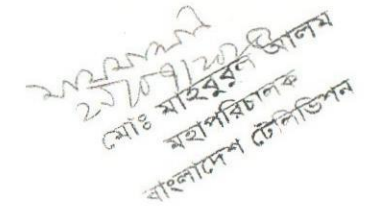 মোঃ মাহবুবুল আলম
মহাপরিচালক
বাংলাদেশ টেলিভিশন